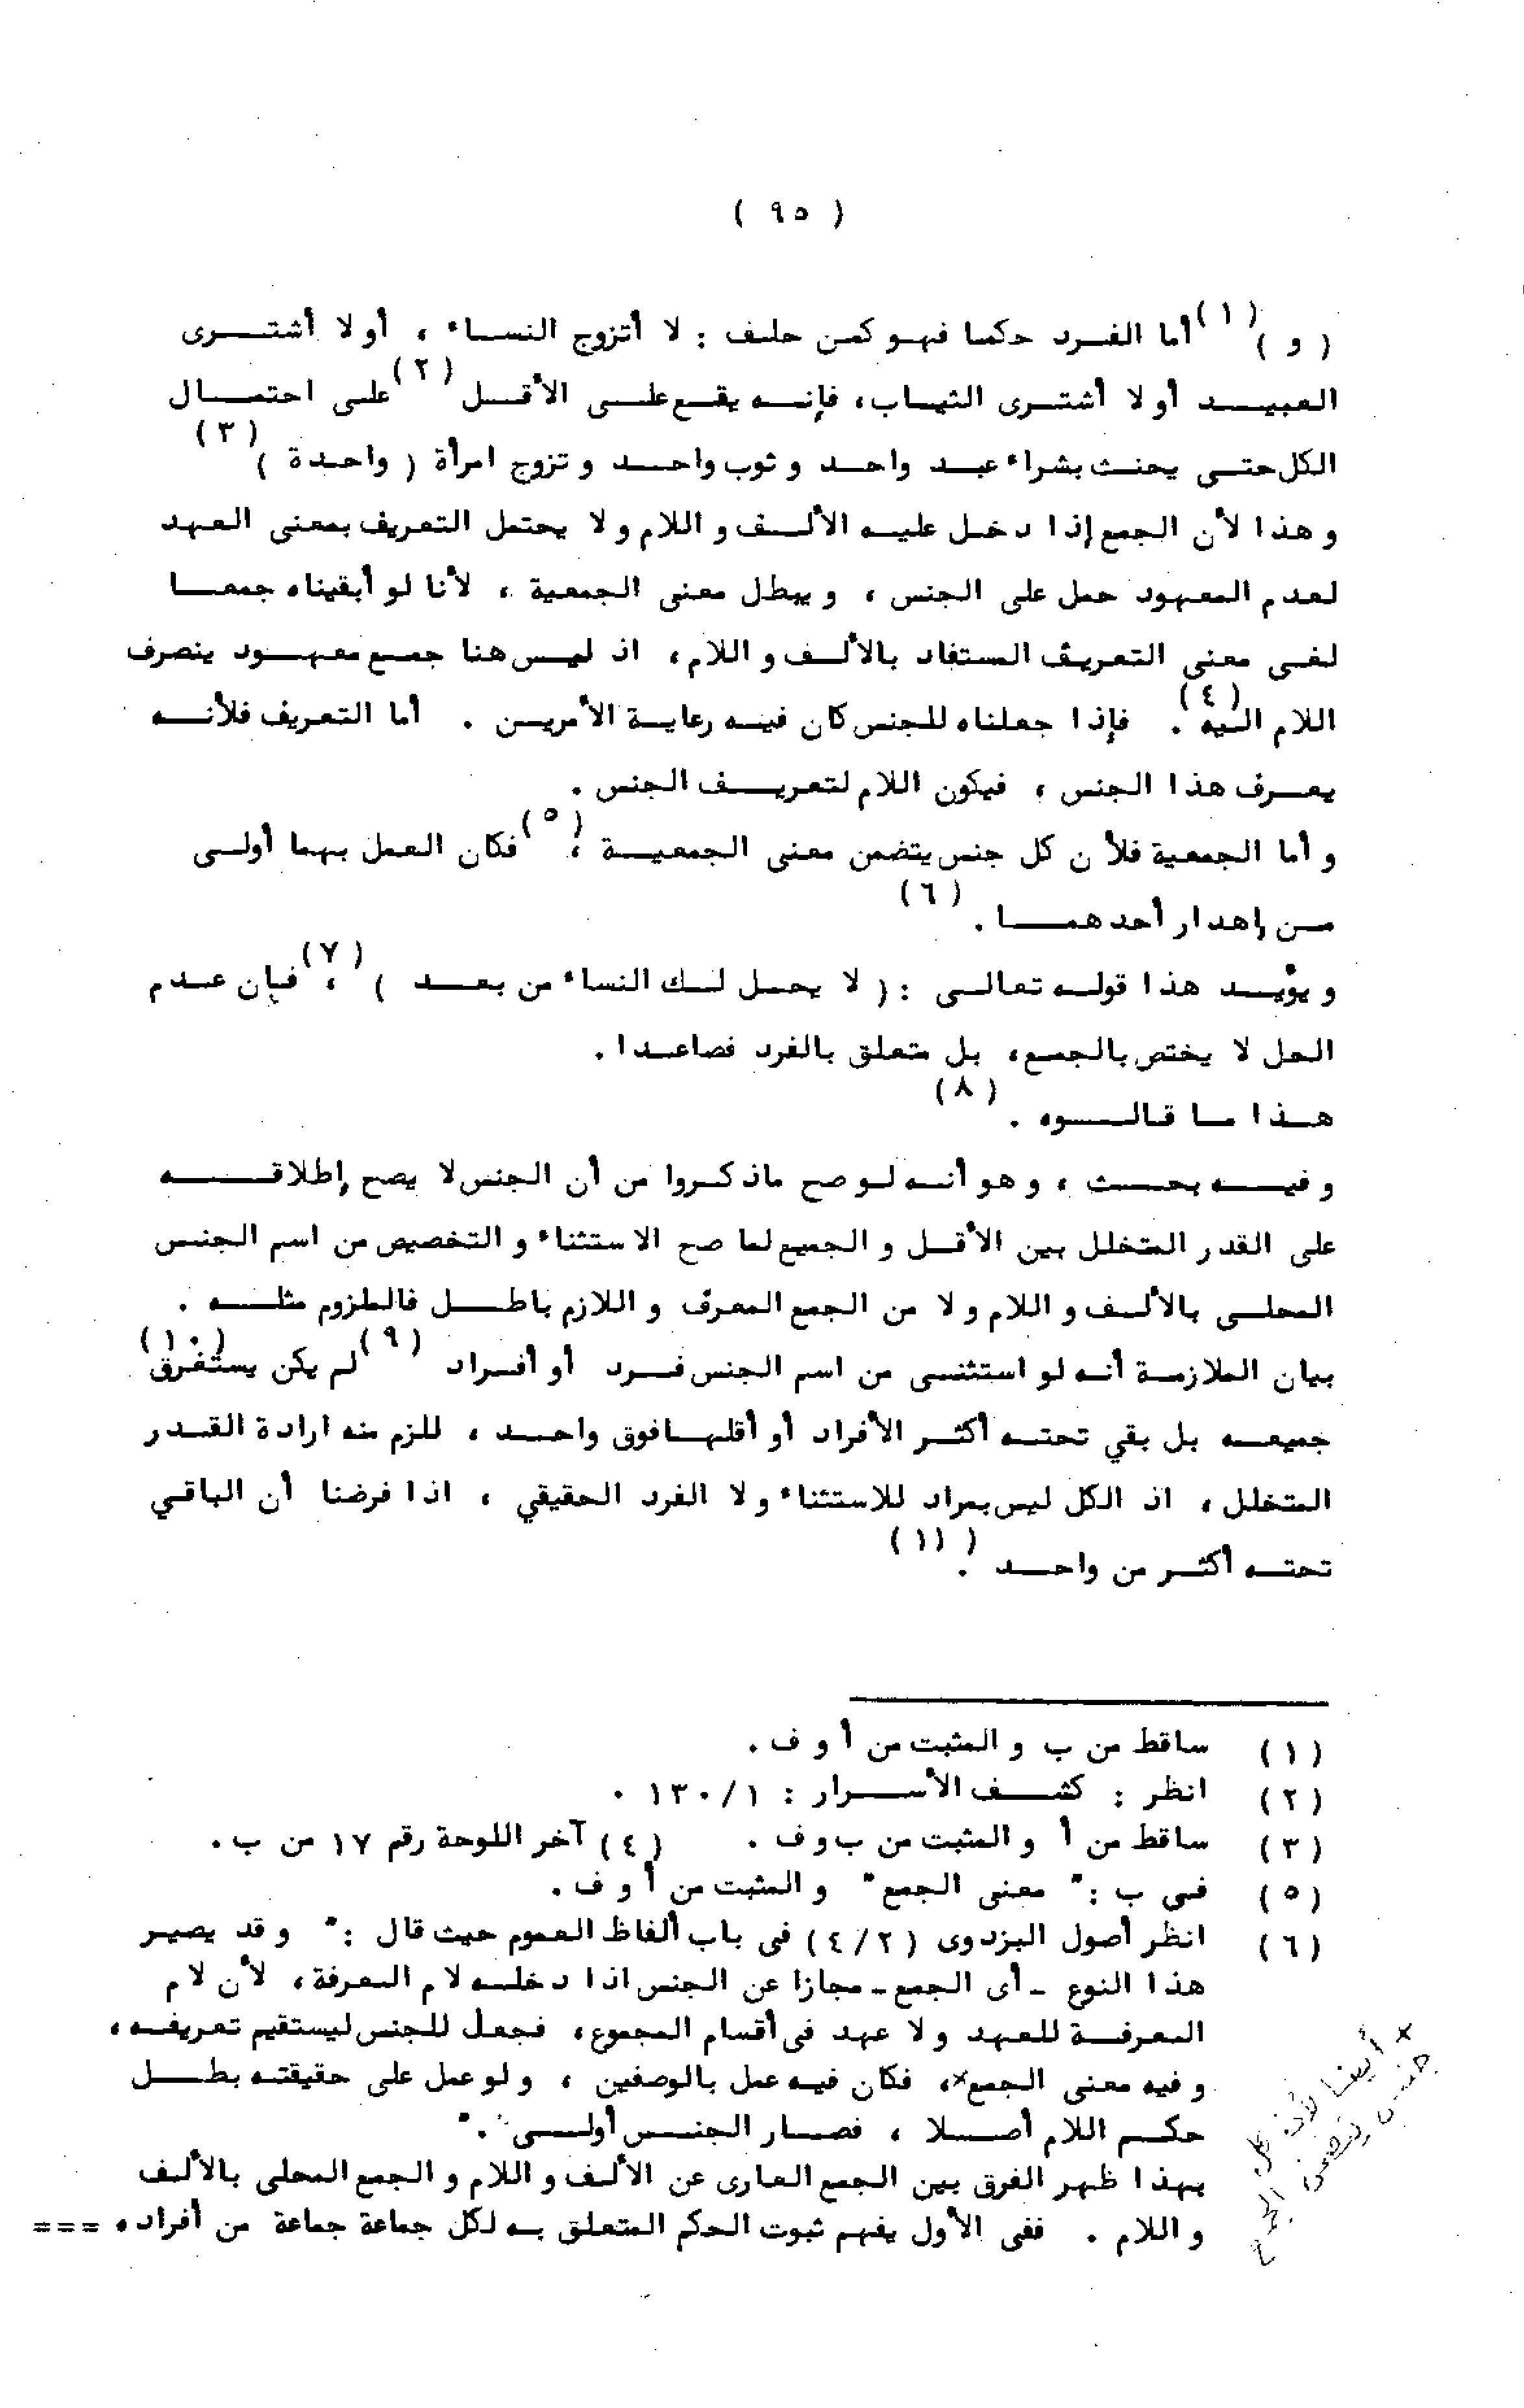 ( ٩٥ )
( و )(١) أما الفرد حكما فهو كمن حلف : لا أتزوج النساء ، أو لا أشترى
العبيد أو لا أشترى الثياب، فإنه يقع على الأقل (٢) على احتمال
الكل حتى يحنث بشراء عبد واحد وثوب واحد وتزوج امرأة ( واحدة )(٣)
وهذا لأن الجمع إذا دخل عليه الألف و اللام ولا يحتمل التعريف بمعنى العهد
لعدم المعهود حمل على الجنس ، ويبطل معنى الجمعية ، لأنا لو أبقيناه جمعا
لغى معنى التعريف المستفاد بالألف و اللام، اذ ليس هنا جمع معهود ينصرف
اللام اليه (٤). فإذا جعلناه للجنس كان فيه رعاية الأمرين . أما التعريف فلأنه
يعرف هذا الجنس ، فيكون اللام لتعريف الجنس .
وأما الجمعية فلأن كل جنس يتضمن معنى الجمعية ،(٥) فكان العمل بهما أولى
من إهدار أحدهما . (٦)
ويؤيد هذا قوله تعالى : ( لا يحل لك النساء من بعد ) ،(٧) فإن عدم
الحل لا يختص بالجمع، بل متعلق بالفرد فصاعدا .
هذا ما قالوه . (٨)
وفيه بحث ، وهو أنه لو صح ماذكروا من أن الجنس لا يصح إطلاقه
على القدر المتخلل بين الأقل و الجميع لما صح الاستثناء و التخصيص من اسم الجنس
المحلى بالألف و اللام ولا من الجمع المعرف و اللازم باطل فالملزوم مثله .
بيان الملازمة أنه لو استثنى من اسم الجنس فرد أو أفراد (٩) لم يكن يستغرق (١٠)
جميعه بل بقي تحته أكثر الأفراد أو أقلها فوق واحد ، للزم منه ارادة القدر
المتخلل، اذ الكل ليس بمراد للاستثناء ولا الفرد الحقيقي ، اذا فرضنا أن الباقي
تحته أكثر من واحد . (١١)
(١) ساقط من ب و المثبت من أ و ف .
(٢) انظر : كشف الأسرار : ١٣٠/١ .
(٣) ساقط من أ و المثبت من ب و ف . (٤) آخر اللوحة رقم ١٧ من ب .
(٥) فى ب :" معنى الجمع" و المثبت من أ و ف .
(٦) انظر أصول البزدوى (٤/٢) فى باب ألفاظ العموم حيث قال :" وقد يصير
هذا النوع - أى الجمع - مجازا عن الجنس اذا دخله لام المعرفة، لأن لام
المعرفة للعهد ولا عهد فى أقسام المجموع، فجعل للجنس ليستقيم تعريفه،
وفيه معنى الجمع×، فكان فيه عمل بالوصفين ، ولو عمل على حقيقته بطل
حكم اللام أصلا ، فصار الجنس أولى ."
بهذا ظهر الفرق بين الجمع العارى عن الألف و اللام و الجمع المحلى بالألف
و اللام . ففى الأول يفهم ثبوت الحكم المتعلق به لكل جماعة جماعة من أفراده ===
× أيضا لأن كل
جنس يتضمن الجمع